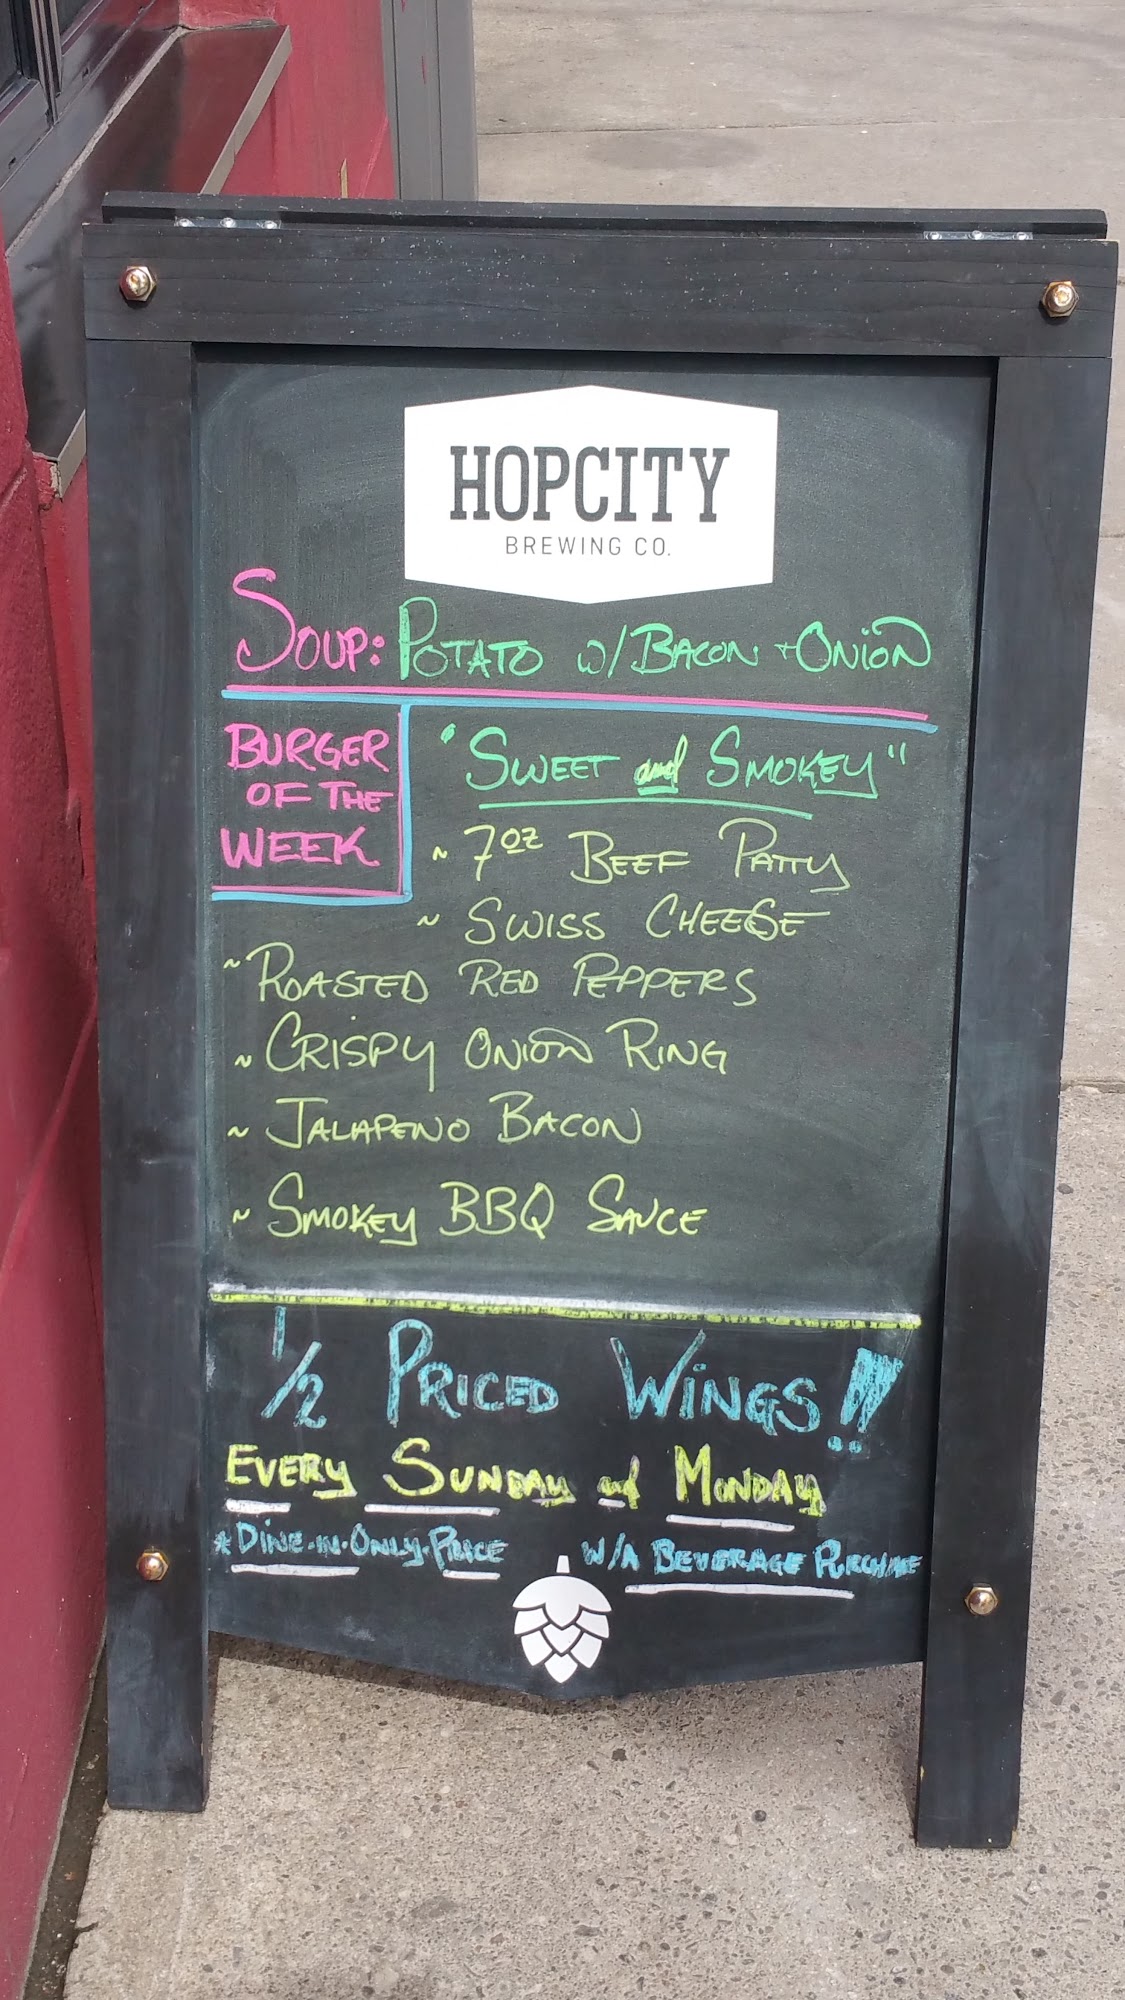 HOPCITY
BREWING CO.
SOUP: POTATO W/ BACON + ONION
BURGER
OF THE
WEEK
"SWEET and SMOKEY"
~ 7oz BEEF PATTY
~ SWISS CHEESE
~ ROASTED RED PEPPERS
~ CRISPY ONION RING
~ JALAPENO BACON
~ SMOKEY BBQ SAUCE
1/2 PRICED WINGS!!
EVERY SUNDAY and MONDAY
*DINE-IN-ONLY-PRICE W/A BEVERAGE PURCHASE